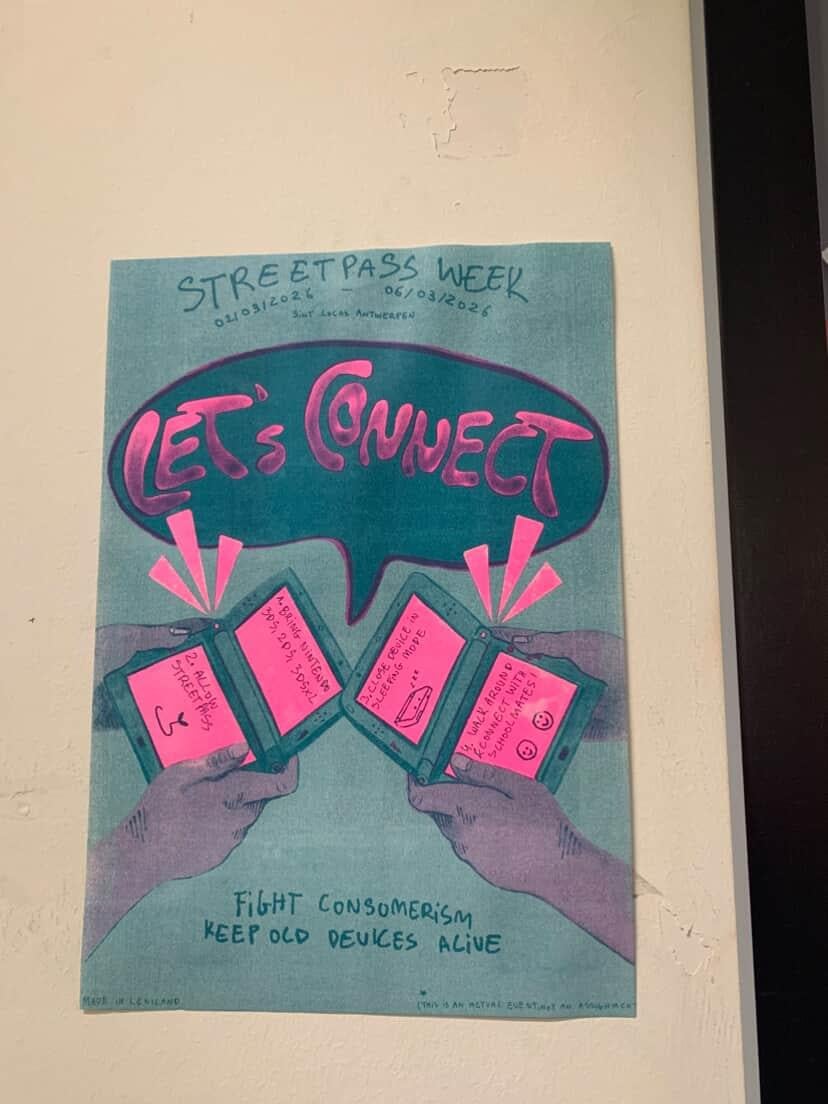 STREETPASS WEEK
02/03/2026 - 06/03/2026
SINT LUCAS ANTWERPEN
LET'S CONNECT
1. BRING NINTENDO
3DS, 2DS, 3DSXL
2. ALLOW
STREETPASS
3. CLOSE DEVICE IN
SLEEPING MODE
zzz
4. WALK AROUND
& CONNECT WITH
SCHOOLMATES!
FIGHT CONSOMERISM
KEEP OLD DEVICES ALIVE
MADE IN LENILAND
(THIS IS AN ACTUAL EVENT, NOT AN ASSIGNMENT